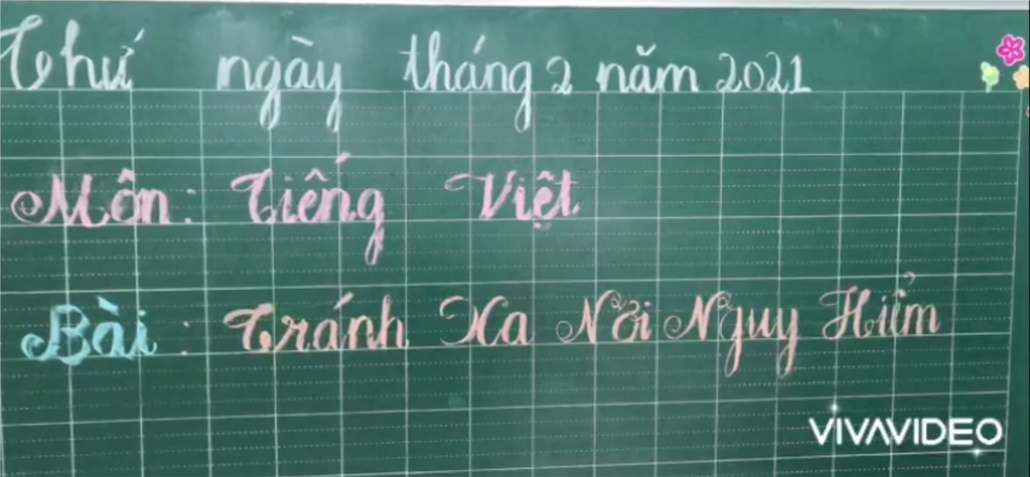 Thứ ngày tháng 2 năm 2021
Môn: Tiếng Việt
Bài: Tránh Xa Nơi Nguy Hiểm
VIVAVIDEO